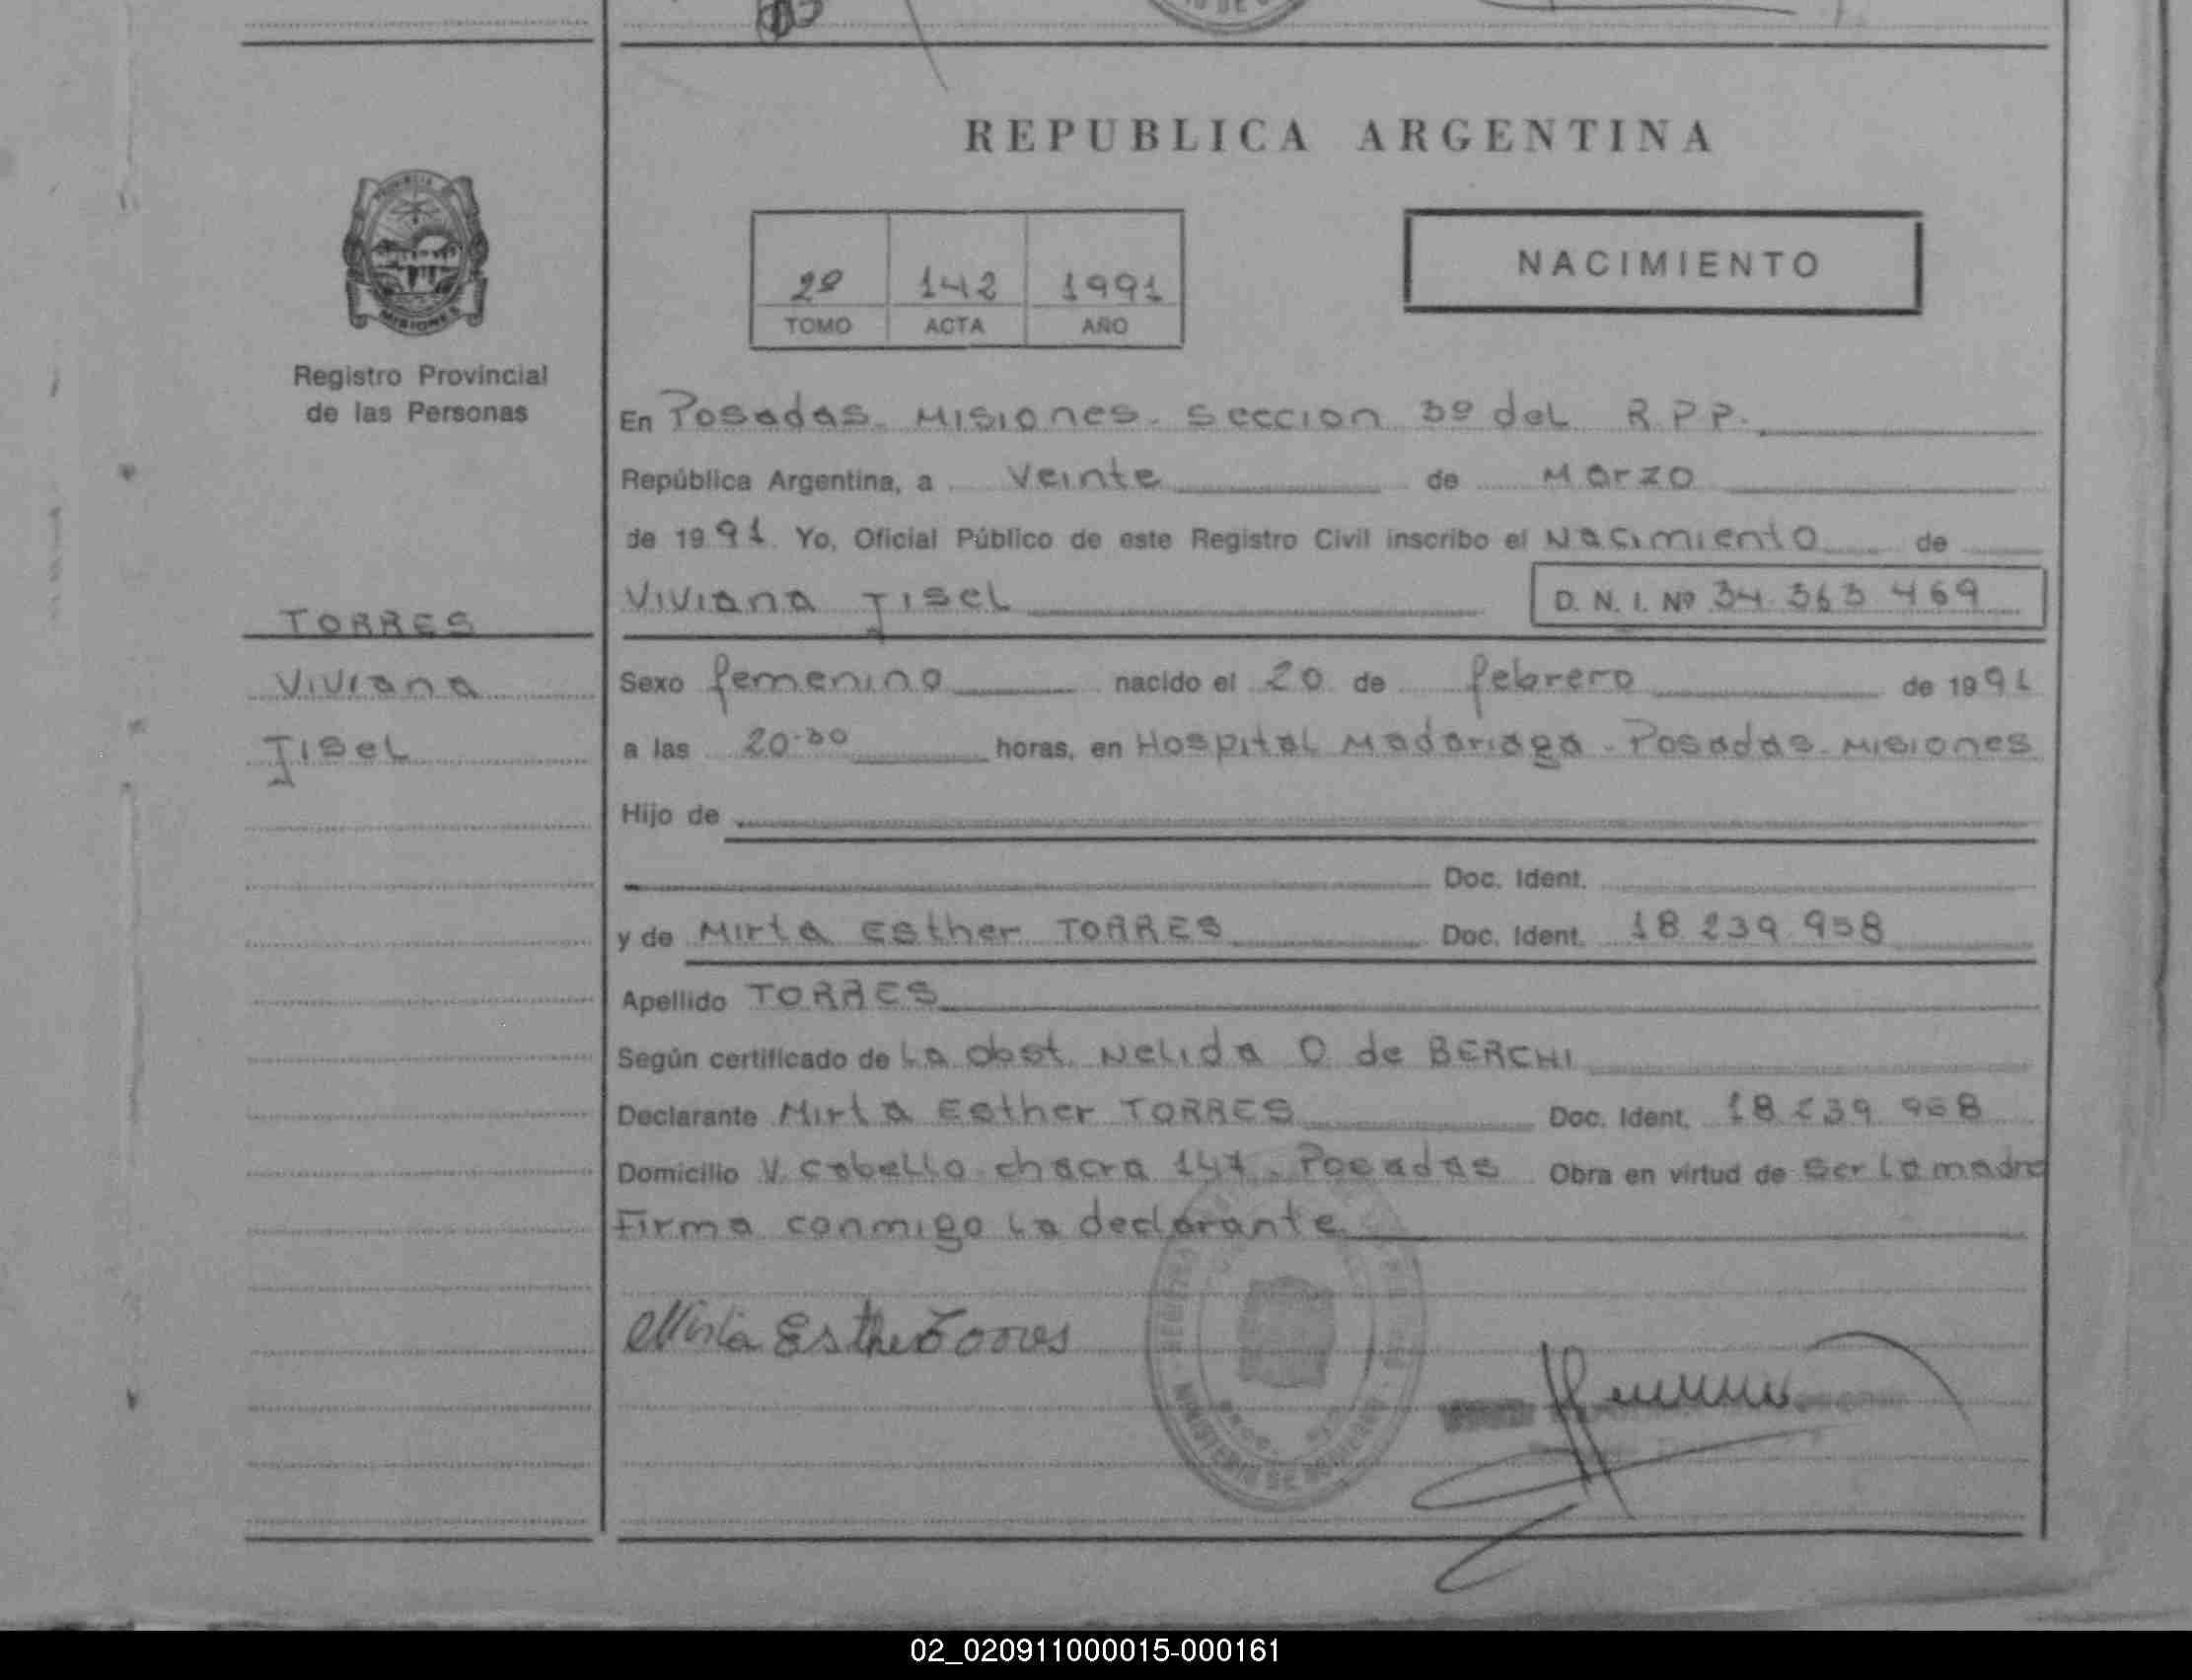 REPUBLICA ARGENTINA
2º 142 1991
TOMO ACTA AÑO
NACIMIENTO
MISIONES
Registro Provincial
de las Personas
TORRES
Viviana
Jisel
En Posadas. Misiones. Seccion 3º del R.P.P.
República Argentina, a veinte de Marzo
de 1991 Yo, Oficial Público de este Registro Civil inscribo el Nacimiento de
Viviana Jisel D. N. I. Nº 34.363.469
Sexo femenino nacido el 20 de febrero de 1991
a las 20.30 horas, en Hospital Madariaga. Posadas. Misiones
Hijo de
Doc. Ident.
y de Mirta Esther TORRES Doc. Ident. 18.239.958
Apellido TORRES
Según certificado de La obst. Nelida O. de BERCHI
Declarante Mirta Esther TORRES Doc. Ident. 18.239.958
Domicilio V. Cabello chacra 147. Posadas Obra en virtud de ser la madre
Firma conmigo la declarante
Mirta Esther Torres
MINISTERIO DE GOBIERNO
02_020911000015-000161